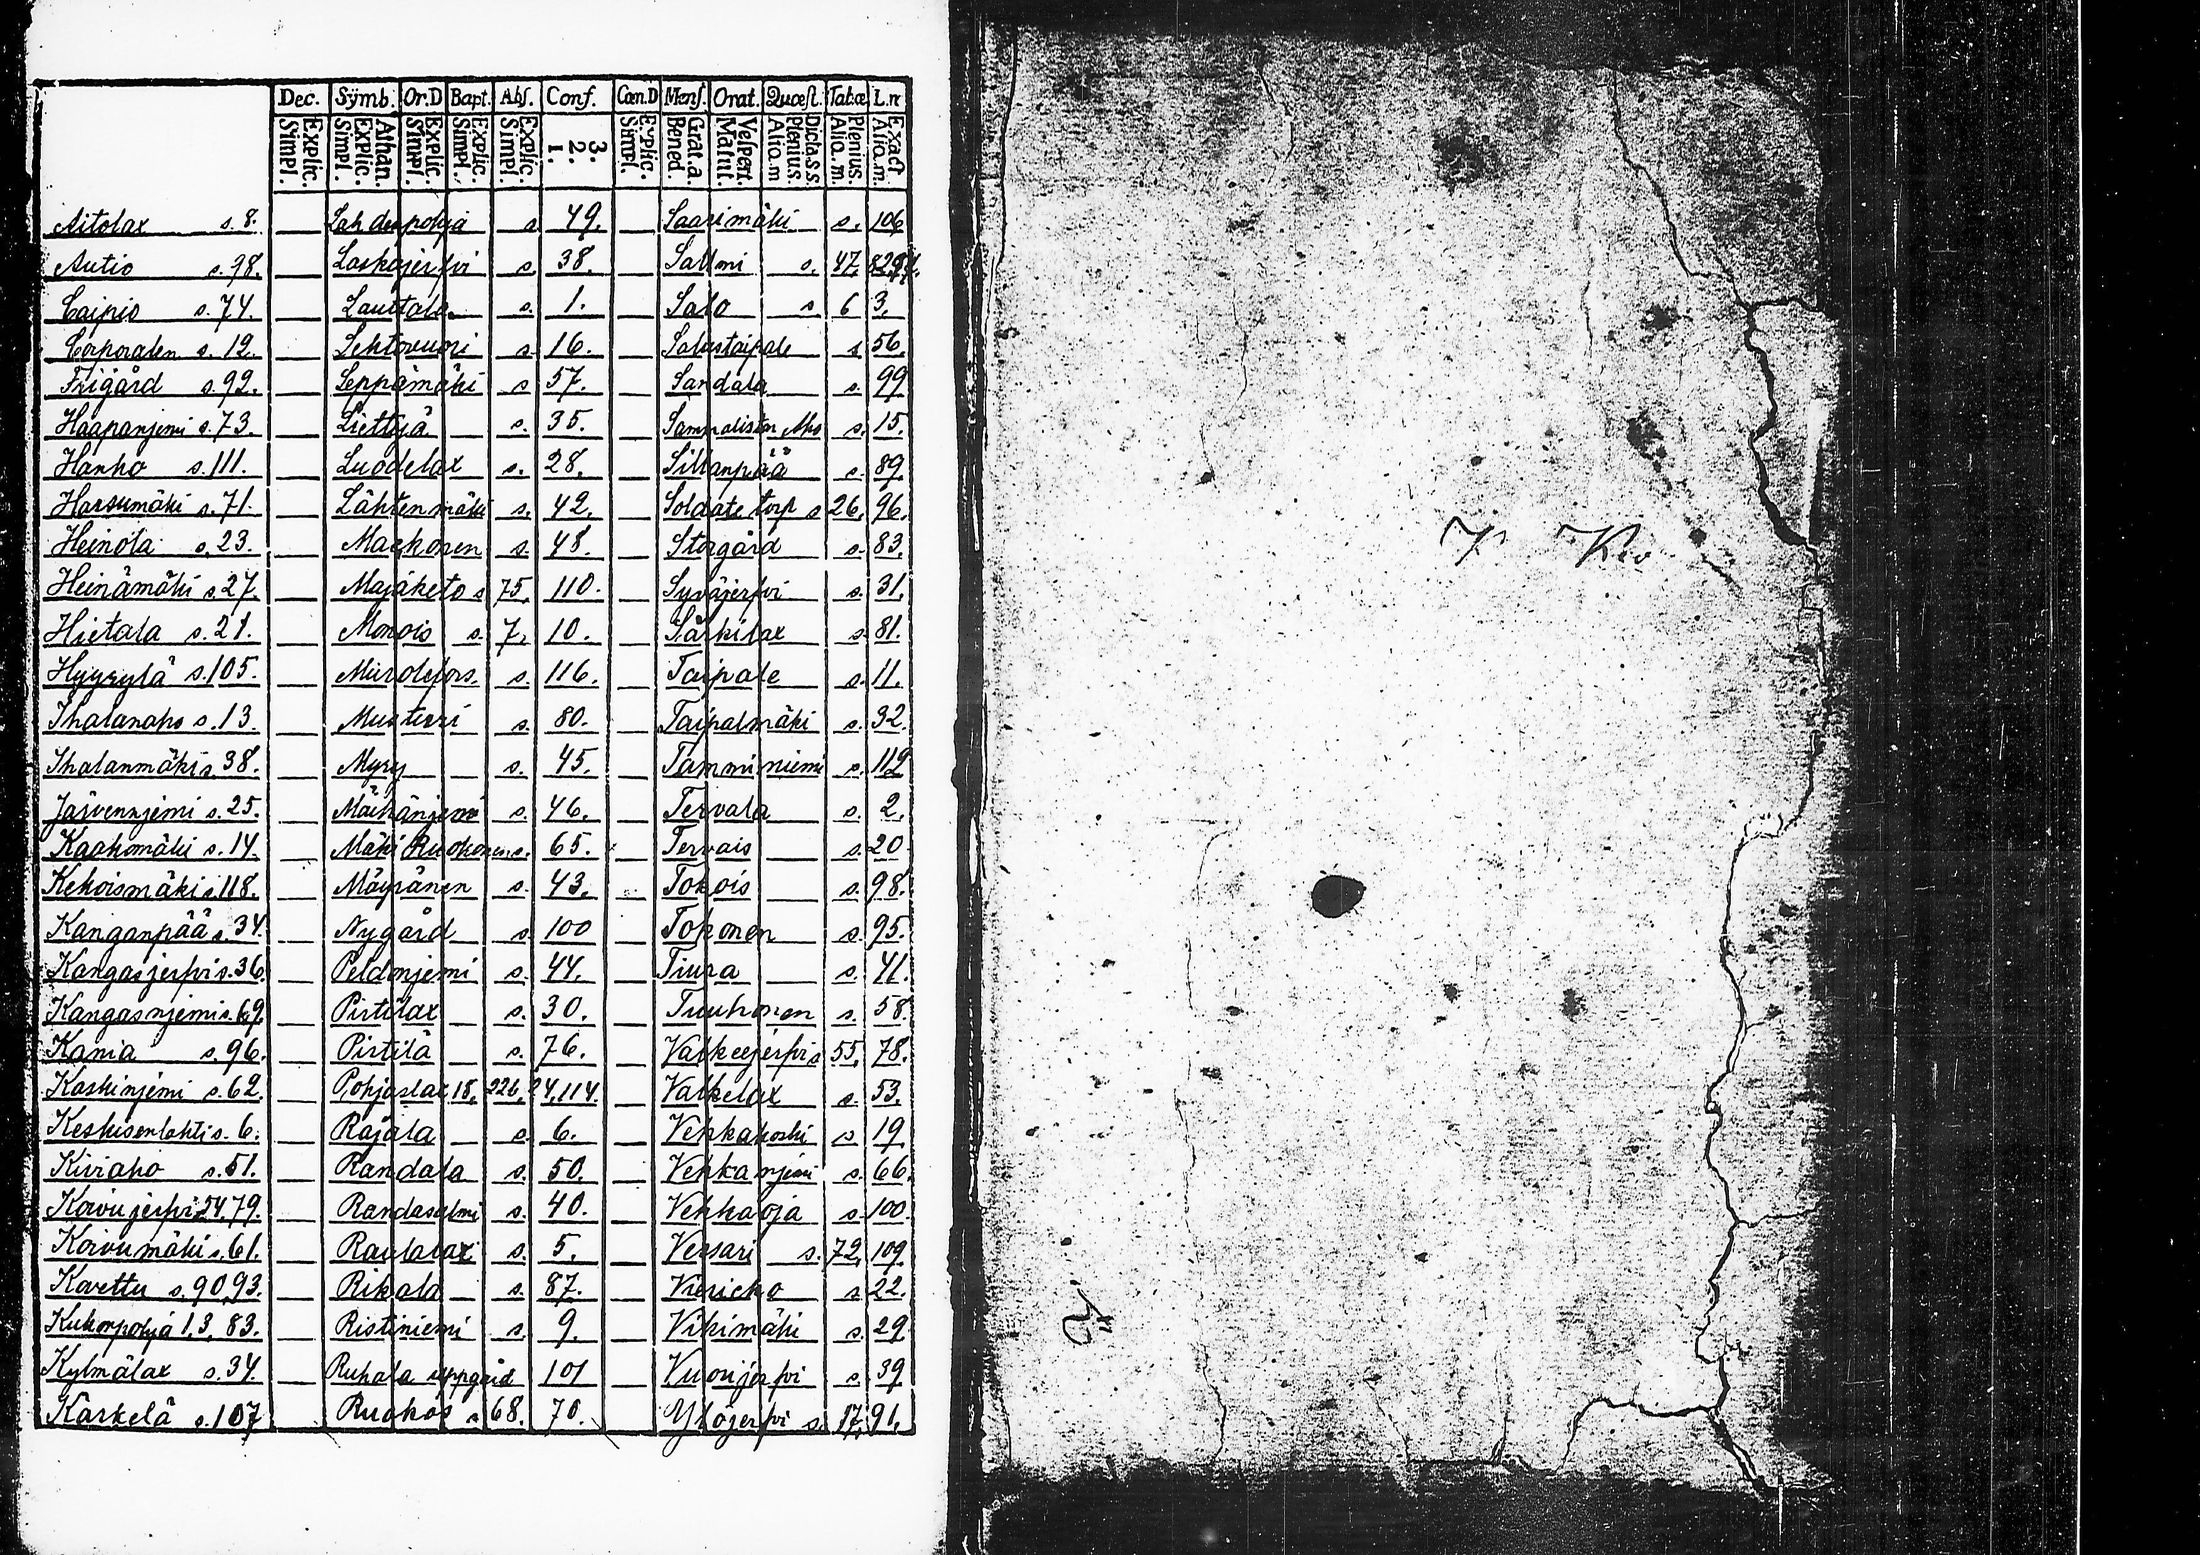 Dec. Sÿmb. Or.D Bapt. Abs. Conf. Cœn.D Mens. Orat. Quœst. Tab.œ L.n
Explic. Simpl. Athan. Explic. Simpl. Explic. Simpl. Explic. Simpl. Explic. Simpl. 3. 2. 1. Explic. Simpl. Grat.a. Bened. Vespert. Matut. Dicta.S.S. Plenius. Aliq.m Plenius. Aliq.m. Exact Aliq.m.
Aitolax s. 8. Lahdenpohja s 49. Saarimäki s. 106
Autio s. 98. Laskojerfvi s. 38. Sallmi s. 47,
Caipio s. 74. Lauttala s. 1. Salo s. 6 3.
Corporalen s. 12. Lehtovuori s. 16. Salustaipale s 56.
Frigård s. 92. Leppämäki s 57. Sandala s. 99
Haapanjemi s. 73. Liettyä s. 35. Sammalisten Aho s. 15.
Hanho s. 111. Luodelax s. 28. Sillanpää s. 89.
Harsumäki s. 71. Lähtenmäki s. 42. Soldate torp s 26, 96.
Heinola s. 23. Mackonen s. 48. Storgård s. 83.
Heinämäki s. 27. Majaketo s 75, 110. Syväjerfvi s. 31.
Hietala s. 21. Monois s. 7, 10. Särkilax s. 81.
Hyyrylä s. 105. Murolefors. s. 116. Taipale s. 11.
Ihalanaho s. 13. Mustieri s. 80. Taipalmäki s. 32.
Ihalanmäki s. 38. Myry s. 45. Tamminiemi s. 112
Jasvennjemi s. 25. Mäihänjemi s. 46. Tervala s. 2.
Kaahomäki s. 14. Mäki Ruokonen s. 65. Tervais s. 20
Kekoismäki s. 118. Mäyränen s. 43. Tokois s. 98.
Kanganpää s. 34. Nygård s. 100 Tokonen s. 95.
Kangasjerfvi s. 36 Peldonjemi s. 44. Tiura s. 41.
Kangasnjemi s. 69. Pirtilax s. 30. Tuuhonen s. 58.
Kania s. 96. Pirtilä s. 76. Valkeejerfvi s 55, 78.
Koskinjemi s. 62. Pohjaslax 18, 226, 24, 114. Valkelax s. 53.
Keskisenlahti s. 6. Rajala s. 6. Vehkakoski s 19
Kiviaho s. 51. Randala s. 50. Vehkanjemi s. 66.
Koivujerfvi 54, 79. Randasalmi s. 40. Vehkaoja s. 100.
Koivumäki s. 61. Raulalax s. 5. Versari s. 72, 109.
Kovettu s. 90, 93. Rikala s. 87. Viericko s 22.
Kukorpohja 1, 3, 83. Ristiniemi s. 9. Vihimäki s. 29.
Kylmälax s. 34. Ruhala uppgård 101 Vuorijerfvi s. 39
Karkelä s. 107 Ruokos s 68. 70. Ylöjerfvi s. 17, 91.